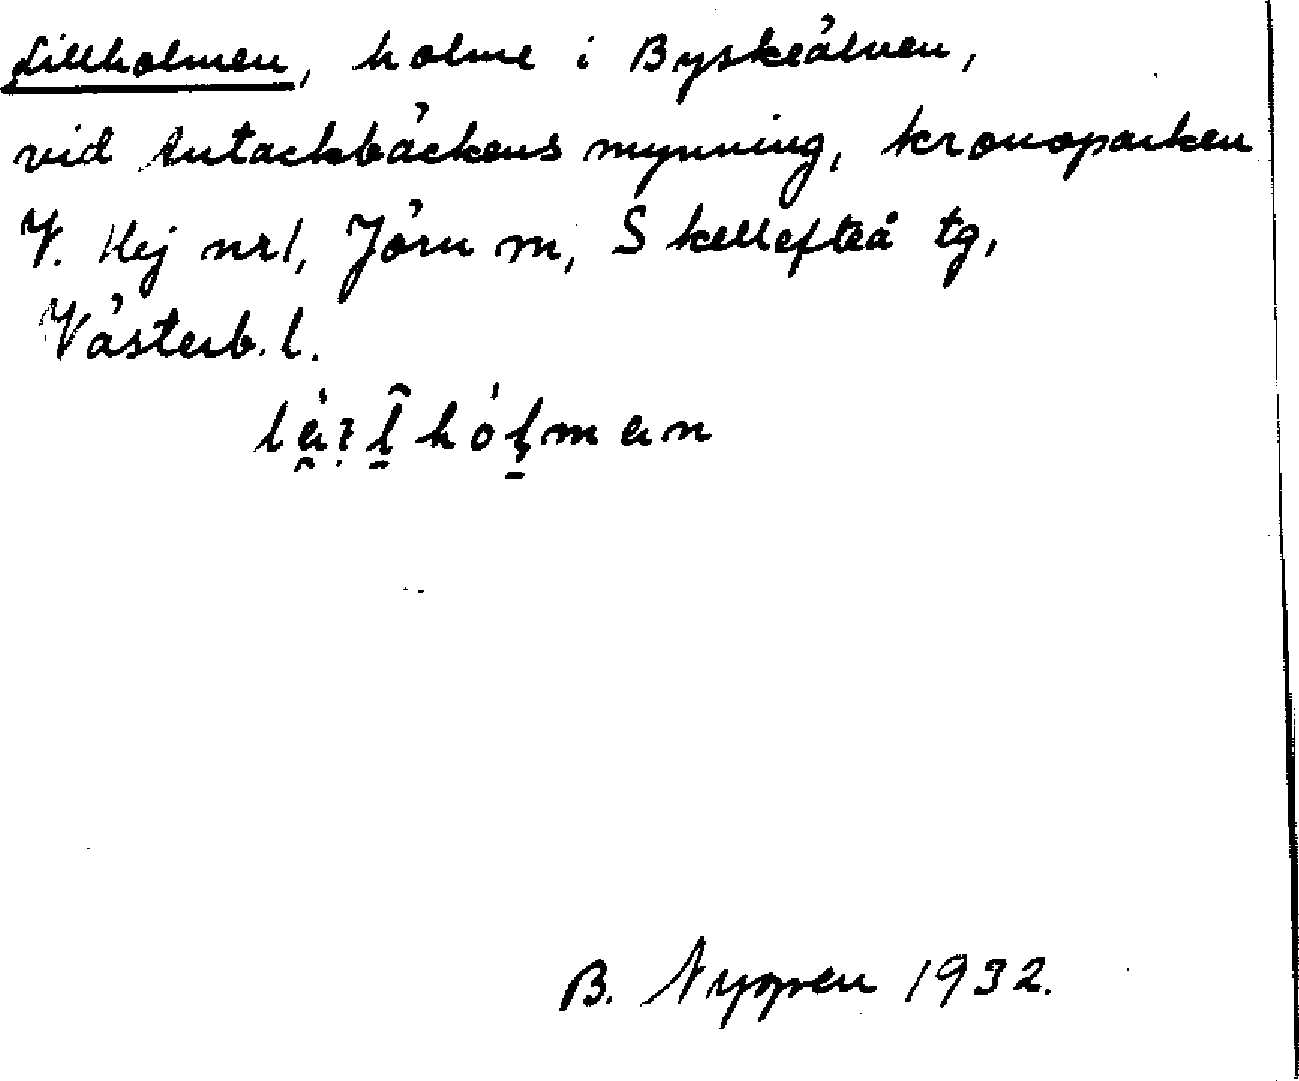 Lillholmen, holme i Byskeälven,
vid Antackbäckens mynning, kronoparken
V. Hej nr 1, Jörn m, Skellefteå tg,
Västerb. l.
B. Nygren 1932.